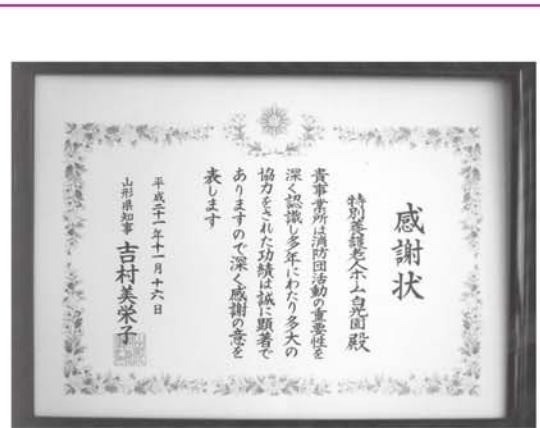 感謝状
特別養護老人ホーム白光園 殿
貴事業所は消防団活動の重要性を
深く認識し多年にわたり多大の
協力をされた功績は誠に顕著で
ありますので深く感謝の意を
表します
平成二十一年十一月十六日
山形県知事 吉村美栄子